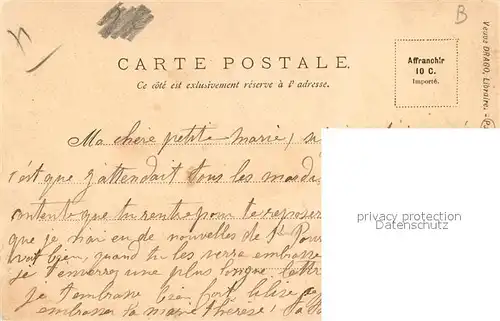 B
CARTE POSTALE.
Ce côté est exlusivement réserve à l'adresse.
Affranchir
10 C.
Importé.
Veuve DRAGO, Libraire.
Ma chère petite marie,
c'est que j'attendait tous les mardi
contente que tu rentre pour te reposer
que je n'ai eu de nouvelles de
bien, quand tu les verra embrasse
je t'enverrez une plus longue lettre
je t'embrasse bien fort
embrasse ta marie thérèse!
privacy protection
watermark